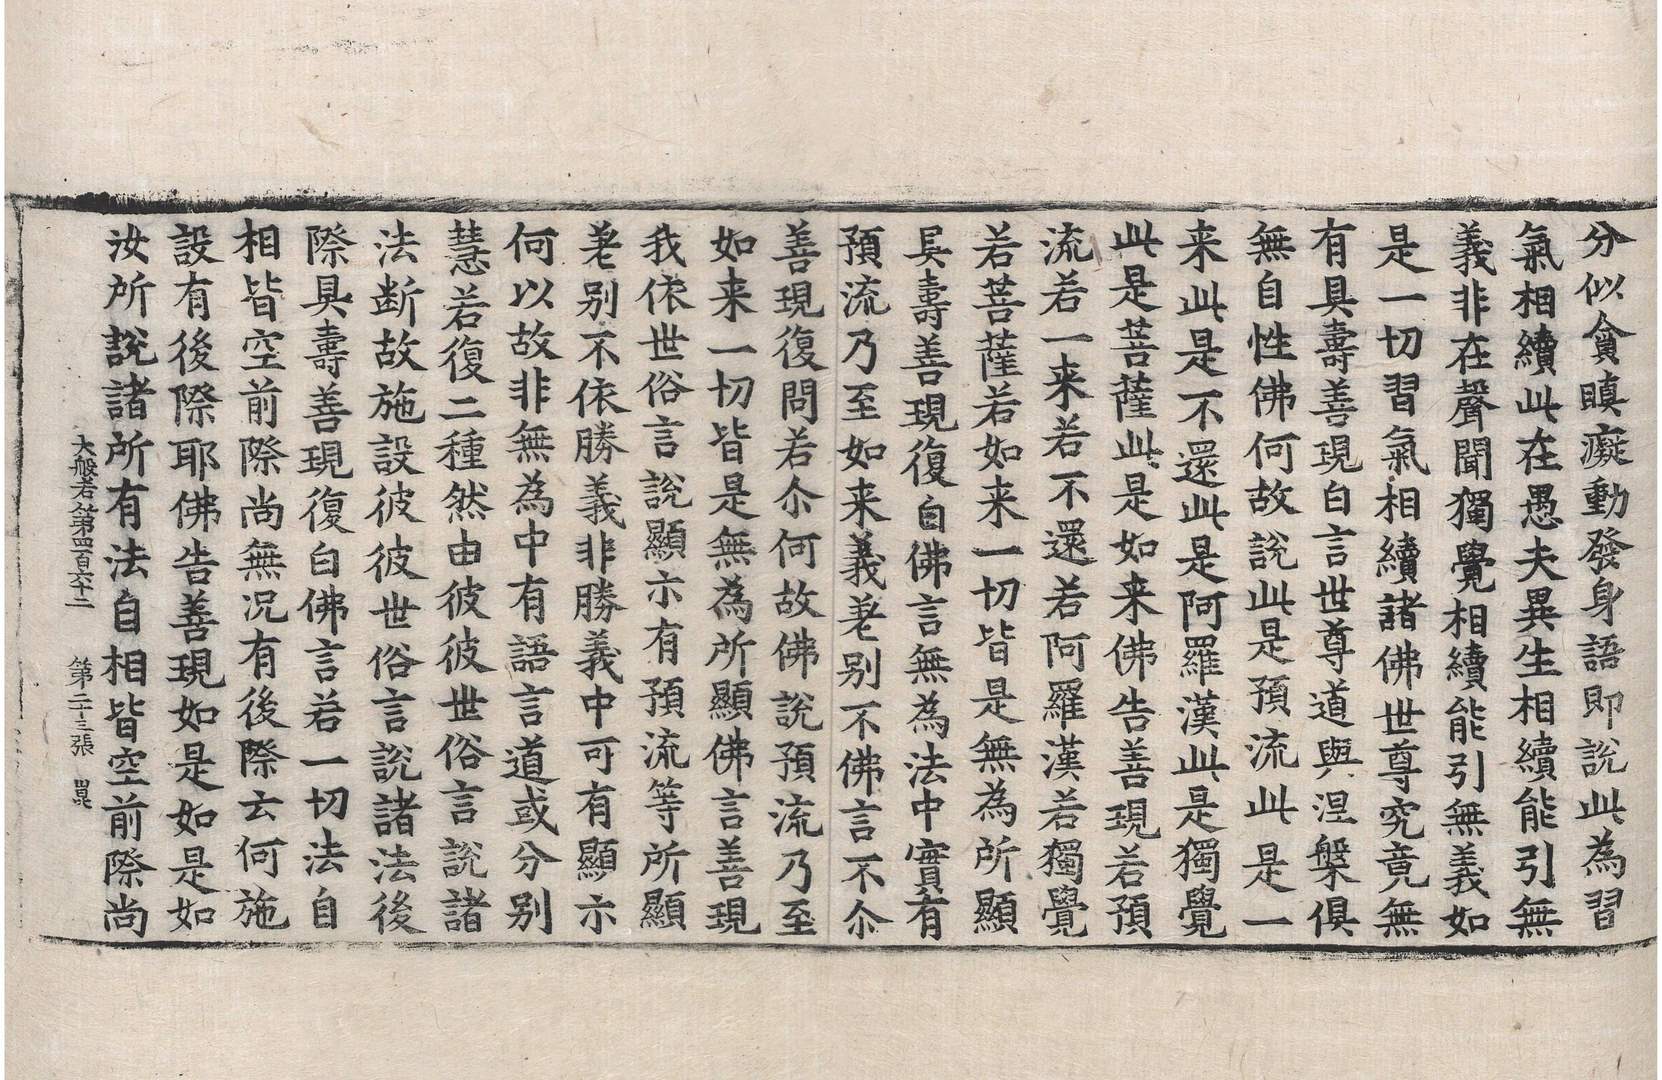 分似貪瞋癡動發身語即說此為習
氣相續此在愚夫異生相續能引無
義非在聲聞獨覺相續能引無義如
是一切習氣相續諸佛世尊究竟無
有具壽善現白言世尊道與涅槃俱
無自性佛何故說此是預流此是一
来此是不還此是阿羅漢此是獨覺
此是菩薩此是如来佛告善現若預
流若一来若不還若阿羅漢若獨覺
若菩薩若如来一切皆是無為所顯
具壽善現復白佛言無為法中實有
預流乃至如来義差別不佛言不尒
善現復問若尒何故佛說預流乃至
如来一切皆是無為所顯佛言善現
我依世俗言說顯示有預流等所顯
差別不依勝義非勝義中可有顯示
何以故非無為中有語言道或分別
慧若復二種然由彼彼世俗言說諸
法断故施設彼彼世俗言說諸法後
際具壽善現復白佛言若一切法自
相皆空前際尚無况有後際云何施
設有後際耶佛告善現如是如是如
汝所說諸所有法自相皆空前際尚
大般若第四百六十二 第二十三張 崑